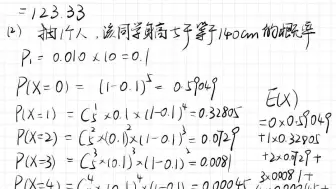 =123.33
(2) 抽1个人,该同学身高大于等于140cm的概率
P₁ = 0.010 × 10 = 0.1
P(X=0) = (1-0.1)⁵ = 0.59049
P(X=1) = C₅¹ × 0.1 × (1-0.1)⁴ = 0.32805
P(X=2) = C₅² × (0.1)² × (1-0.1)³ = 0.0729
P(X=3) = C₅³ × (0.1)³ × (1-0.1) = 0.0081
P(X=4) = C₅⁴ × (0.1)⁴ (1-0.1) = 0.00045
E(X)
= 0 × 0.59049
+ 1 × 0.32805
+ 2 × 0.0729 +
3 × 0.0081 +